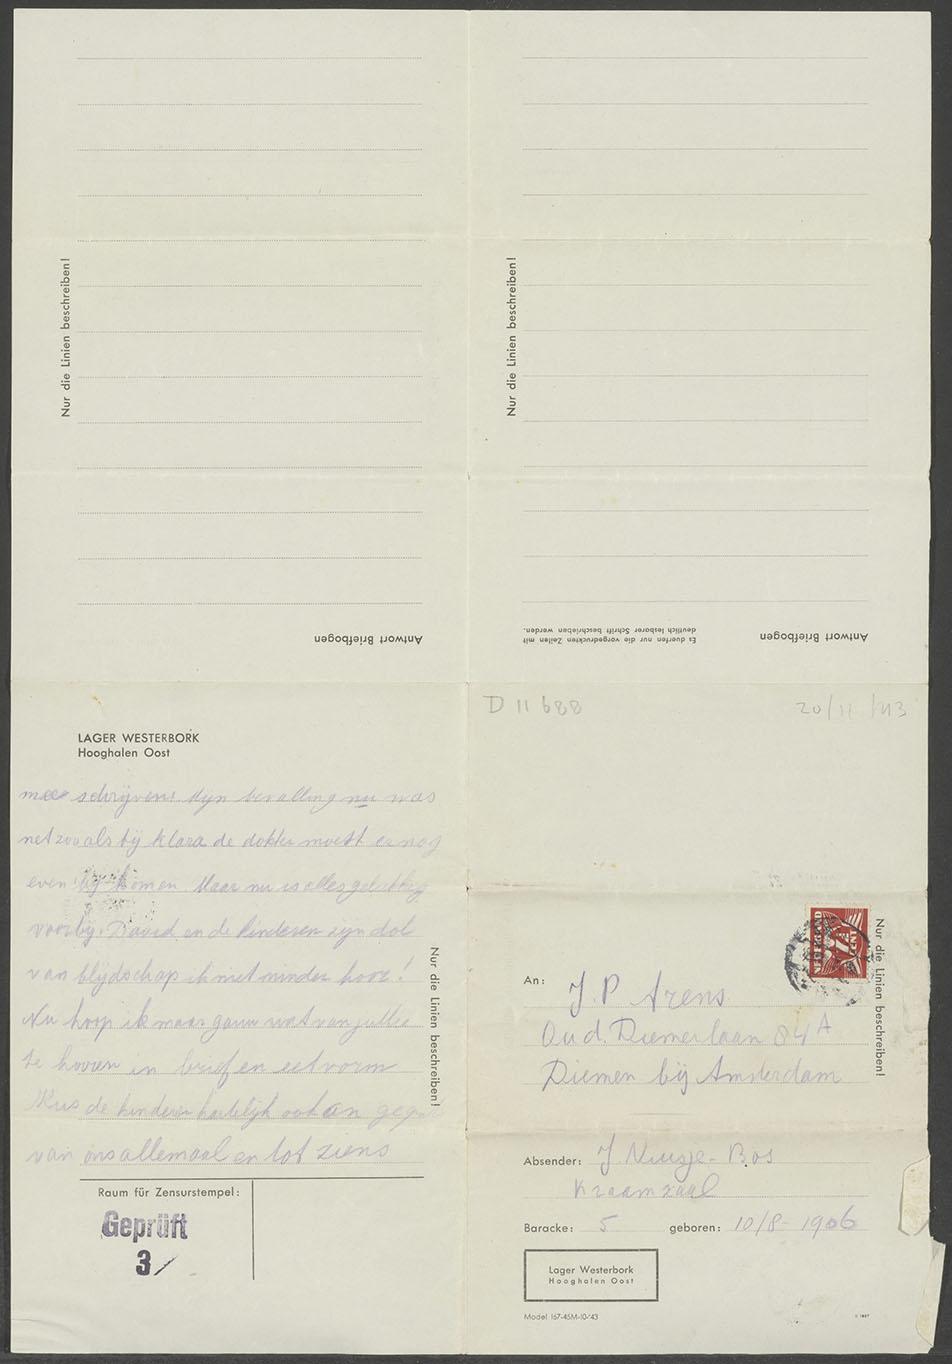 Nur die Linien beschreiben!
Nur die Linien beschreiben!
Antwort Briefbogen
Es duerfen nur die vorgedruckten Zeilen mit
deutlich lesbarer Schrift beschrieben werden.
Antwort Briefbogen
LAGER WESTERBORK
Hooghalen Oost
mee schrijven! Mijn bevalling nu was
net zooals bij Klara de dokter moest er nog
even bij komen. Maar nu is alles gelukkig
voorbij. David en de kinderen zijn dol
van blijdschap ik niet minder hoor!
Nu hoop ik maar gauw wat van jullie
te hooren in brief en eetvorm
Kus de kinderen hartelijk ook en
van ons allemaal en tot ziens
Nur die Linien beschreiben!
Raum für Zensurstempel:
Geprüft
3/
D 11 688
20/11/43
NEDERLAND
7½ CENT
Nur die Linien beschreiben!
An: J. P Arens
Oud. Diemerlaan 84 A
Diemen bij Amsterdam
Absender: J Bos
Kraamzaal
Baracke: 5 geboren: 10/8-1906
Lager Westerbork
Hooghalen Oost
Model 167-45M-10-'43